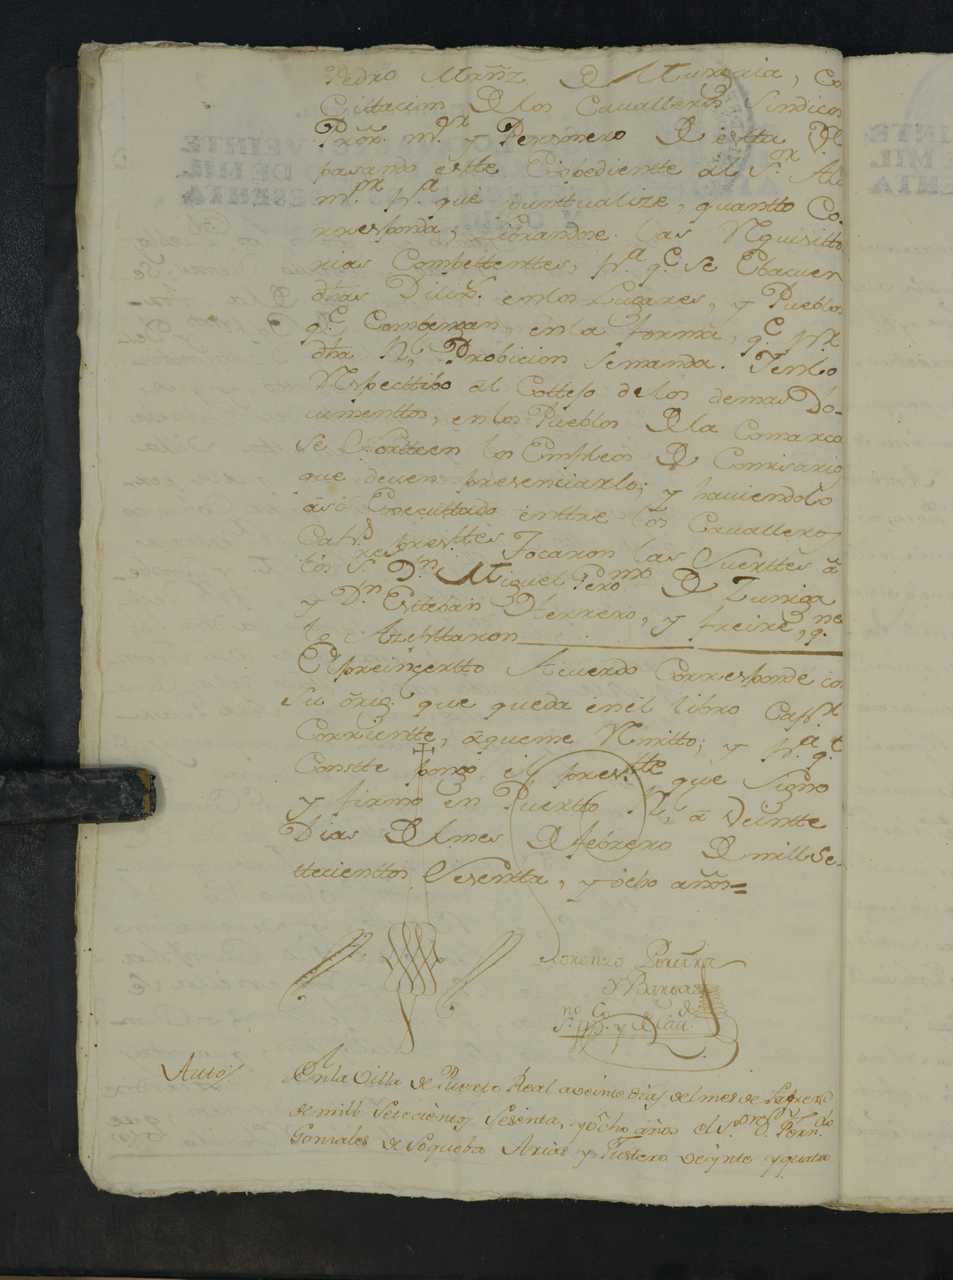 Pedro Mrñz. D Murguia, Co
Citacion D los Cavalleros Sindicos
Prõr. m.or y Personero D estta V.a
pasando estte Expediente al S.or Al.
m.or p.a que punttualize, quantto Co-
rresponda, librandose las Rquisitto
rias Combettenttes, p.a q.e se Ebacuen
dhas Dilix.s en los Lugares, y Pueblos
q.e Combengan, en la forma, q.e p.r
dha Rl Probicion semanda. Y en lo
Respecttibo al Cottejo de los demas Do-
cumenttos, en los Pueblos D la Comarca
se Sortteen los Empleos D Comisarios
que deven presenciarlo; y haviendolo
asi Executtado enttre los Cavalleros
Cap.s presttes Tocaron las Suerttes â
los S.res Dn. Miguel Gero.mo D Zuniga
y Dn. Estteban Herrero, y freire,
lo Azepttaron
El preincertto Acuerdo Corresponde con
su orig.l que queda en el libro Capp.r
Corrientte, aqueme Rmitto; y p.a q.e
Constte pongo el pres.tte que Signo
y firmo en Puertto Rl, a Veintte
Dias Del mes D febrero D mill se-
ttecienttos Sesentta, y ocho años=
Lorenzo
y Bargas
Auto
En la Villa de Puerto Real a veinte dias del mes de Febrero
de mill Setecientos Sesenta, y ocho años el S.or
Gonzales de Soqueba Arias y Fustero Veinte y quatro